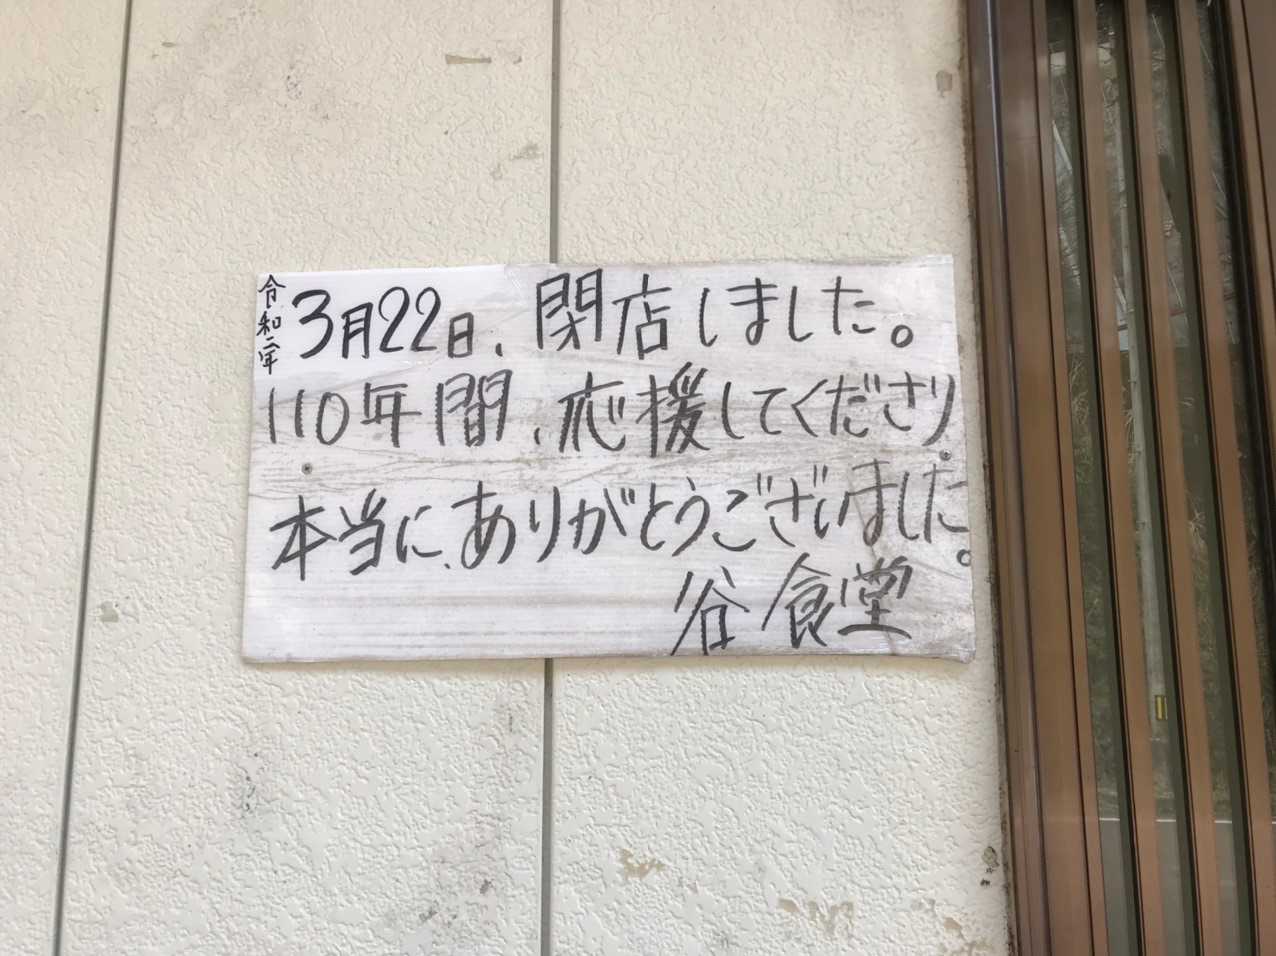 令和二年
3月22日、閉店しました。
110年間、応援してくださり、
本当に、ありがとうございました。
谷食堂